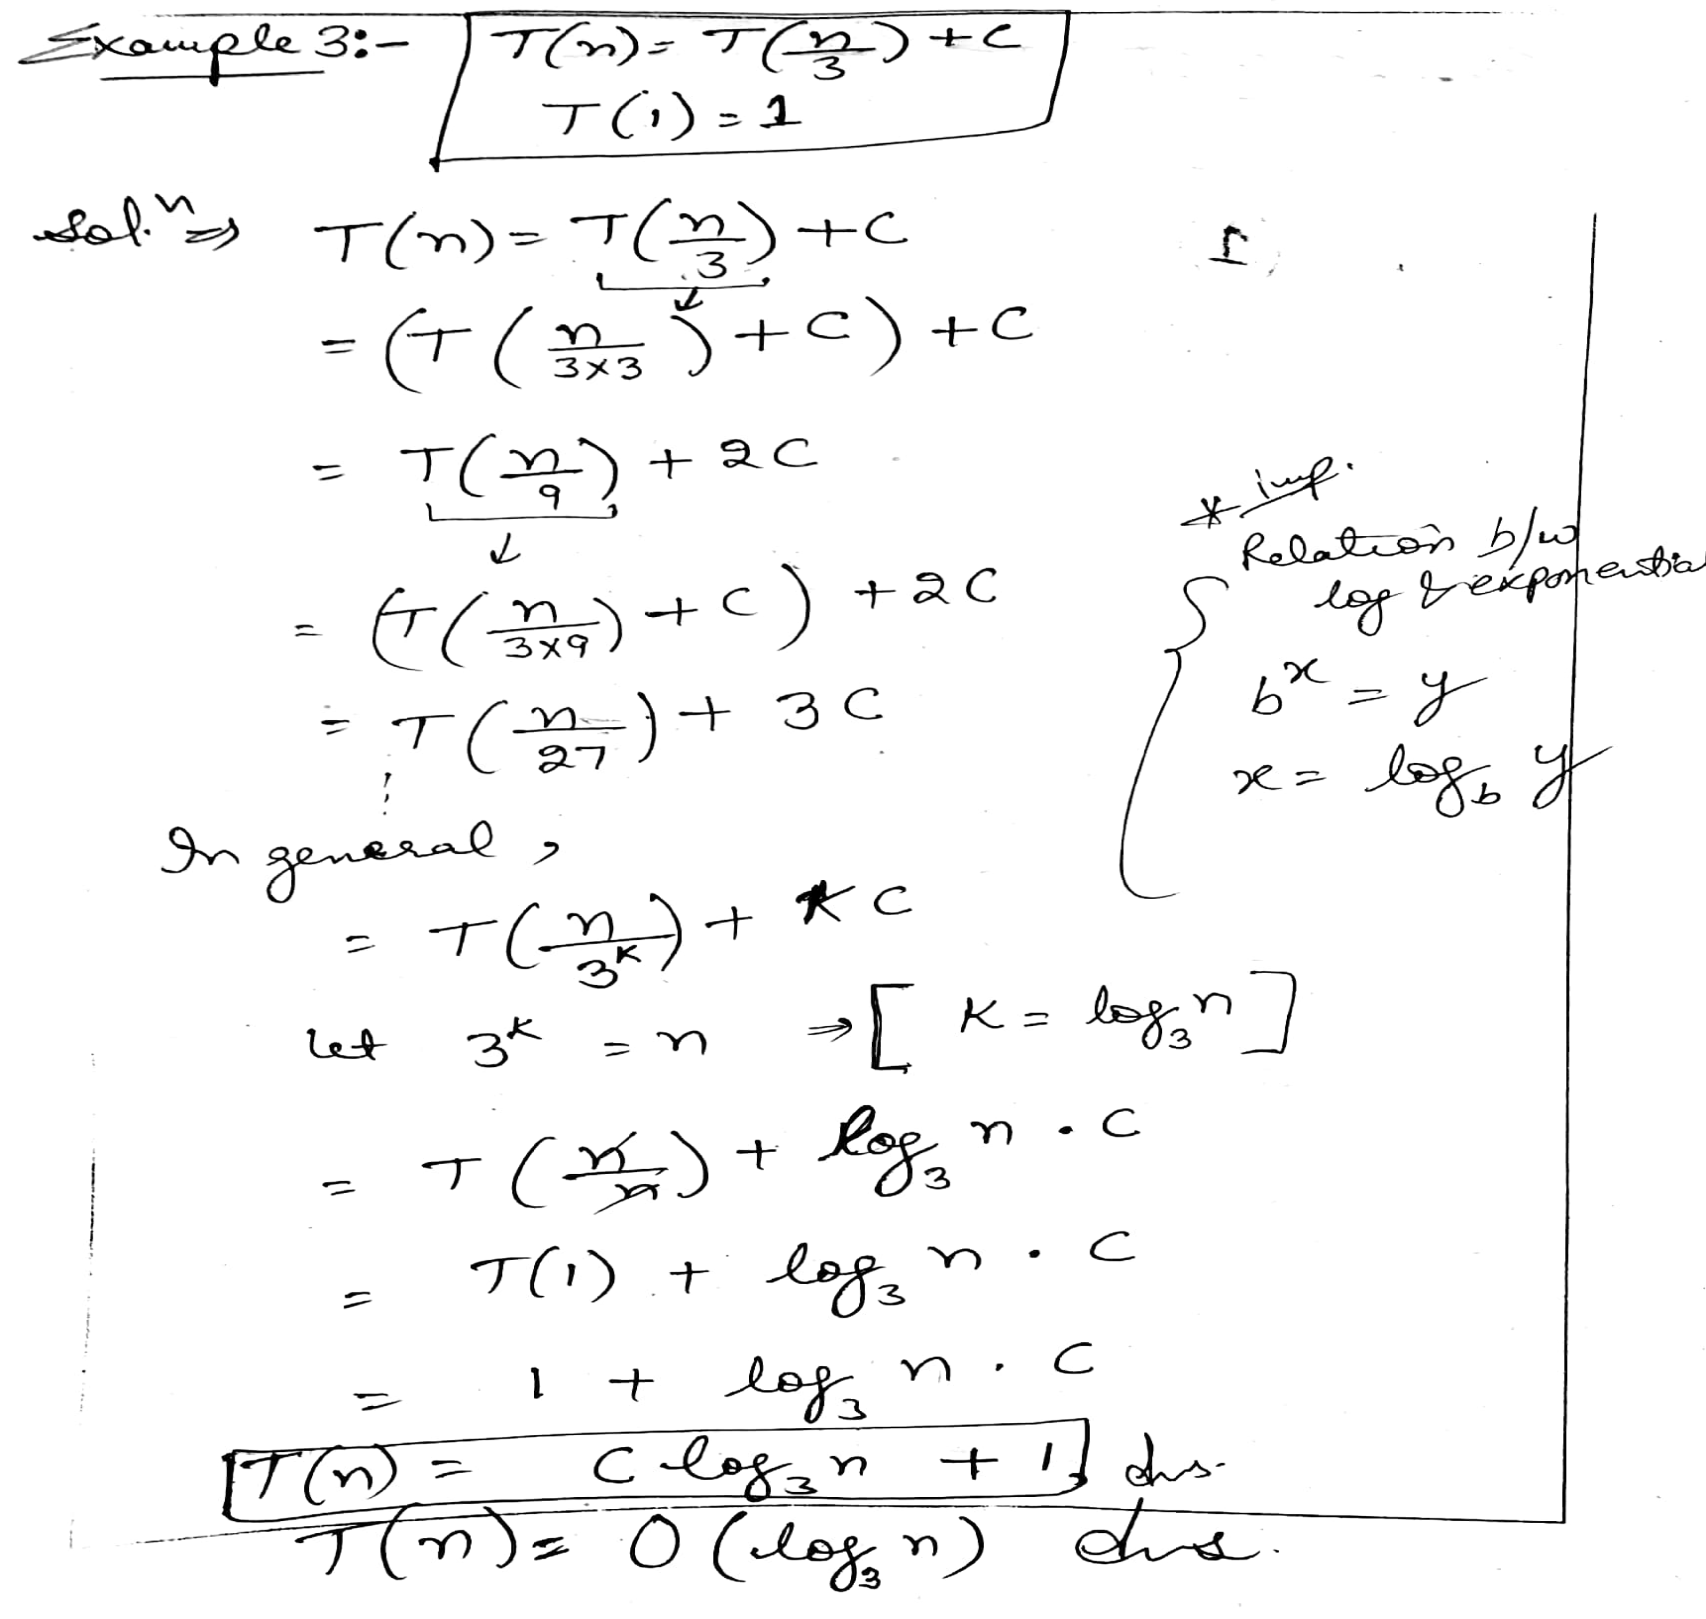 Example 3:- T(n) = T(n/3) + C
T(1) = 1
Sol.ⁿ ⇒ T(n) = T(n/3) + C
= (T(n/3×3) + C) + C
= T(n/9) + 2C
= (T(n/3×9) + C) + 2C
= T(n/27) + 3C
In general,
= T(n/3^K) + KC
let 3^K = n ⇒ [K = log₃n]
= T(n/n) + log₃ n . C
= T(1) + log₃ n . C
= 1 + log₃ n . C
T(n) = C log₃ n + 1 Ans.
T(n) = O(log₃ n) Ans.
* imp.
Relation b/w
log & exponential
b^x = y
x = log_b y